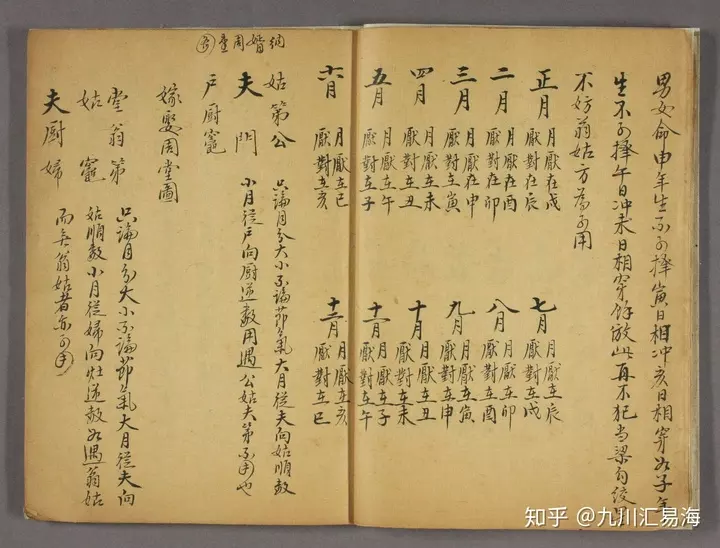 男女命申年生不可擇寅日相冲亥日相穿如子年
生不可擇午日冲未日相穿餘倣此再不犯当梁勾絞
不妨翁姑方爲可用
正月 月厭在戌
厭對在辰
七月 月厭在辰
厭對在戌
二月 月厭在酉
厭對在卯
八月 月厭在卯
厭對在酉
三月 月厭在申
厭對在寅
九月 月厭在寅
厭對在申
四月 月厭在未
厭對在丑
十月 月厭在丑
厭對在未
五月 月厭在午
厭對在子
十一月 月厭在子
厭對在午
六月 月厭在巳
厭對在亥
十二月 月厭在亥
厭對在巳
納婚周堂
姑第公
夫門
戶厨竈
只論月分大小不論節氣大月從夫向姑順数
小月從戶向厨逆数用遇公姑夫第不用也
嫁娶周堂圖
堂翁第
姑竈
夫厨婦
只論月分大小不論節氣大月從夫向
姑順数小月從婦向灶逆数如遇翁姑
而無翁姑者亦可用
知乎 @九川汇易海